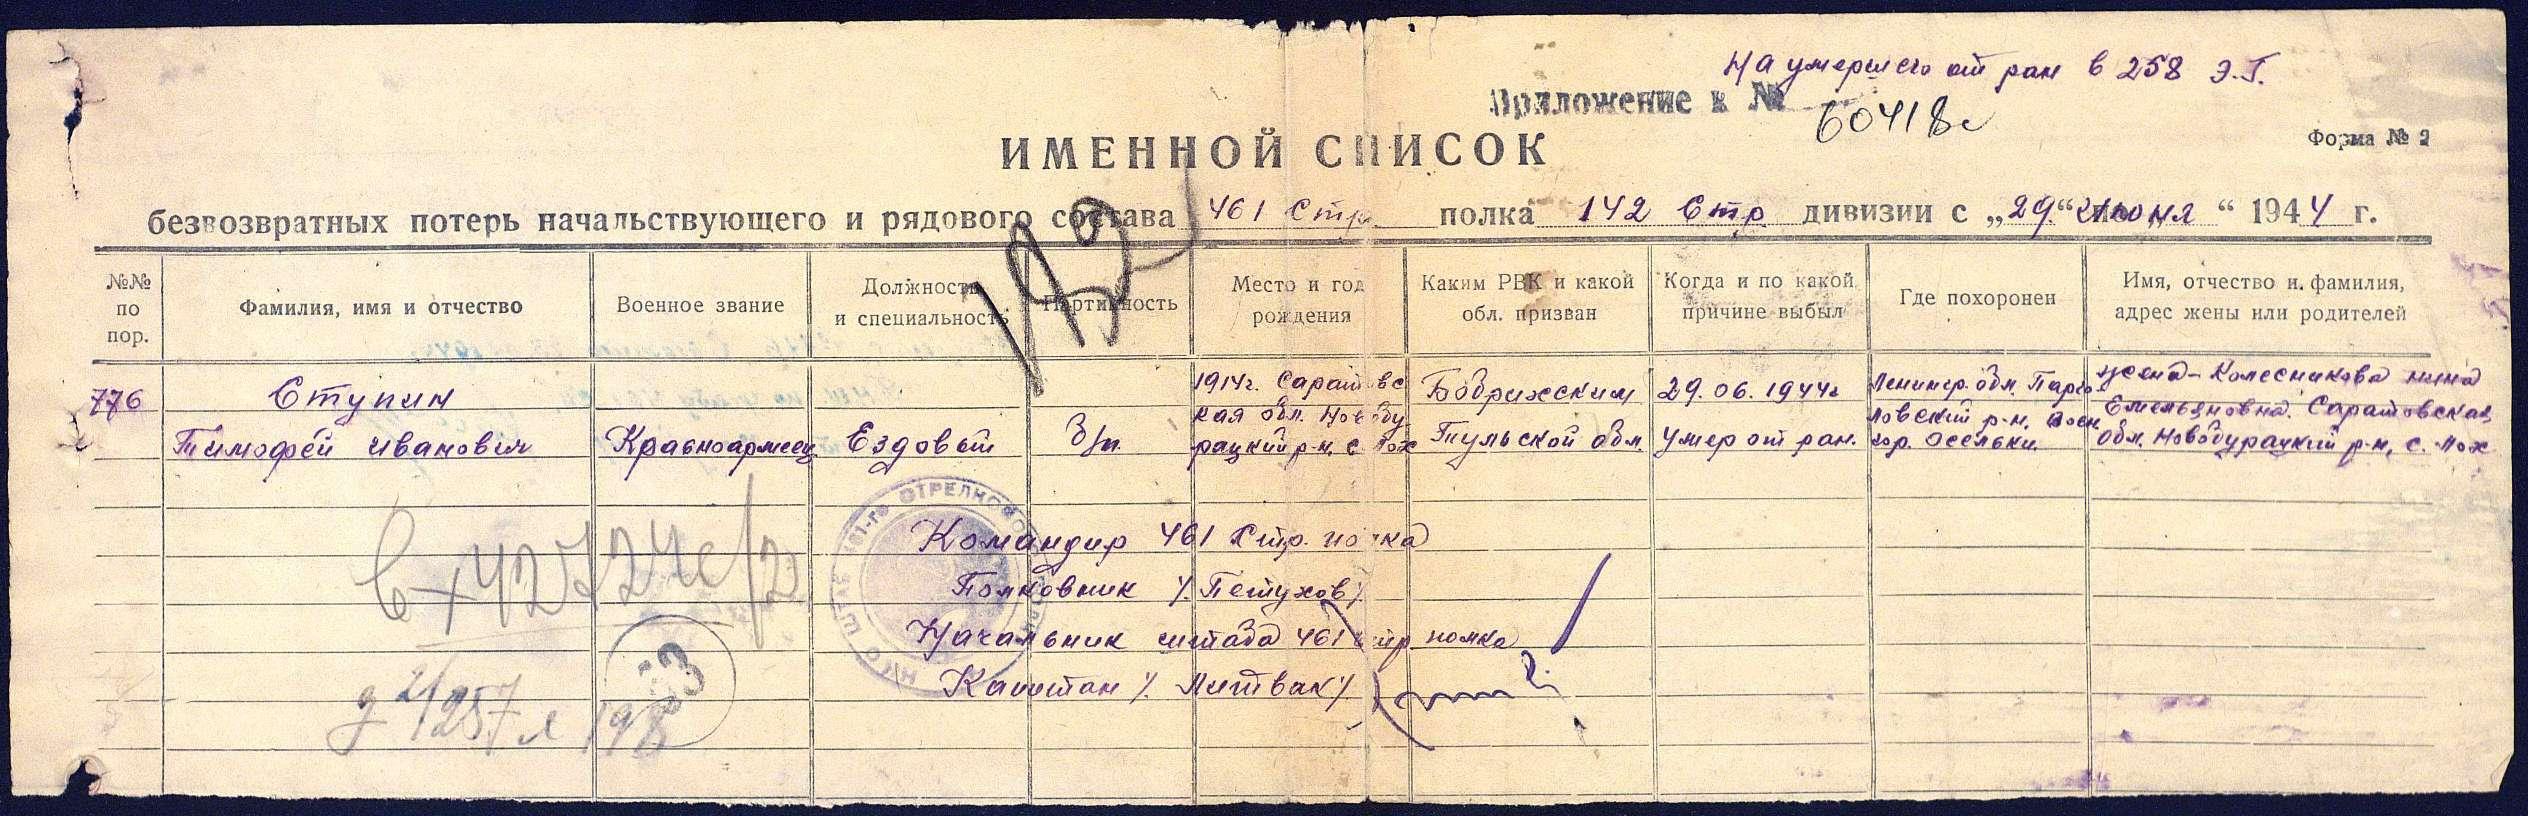 На умершего от ран в 258 Э.Г.
Приложение к № 60418с
Форма № 2
ИМЕННОЙ СПИСОК
безвозвратных потерь начальствующего и рядового состава 461 Стр. полка 142 Стр. дивизии с „29“ июня “ 1944 г.
192
№№ по пор.
Фамилия, имя и отчество
Военное звание
Должность и специальность
Партийность
Место и год рождения
Каким РВК и какой обл. призван
Когда и по какой причине выбыл
Где похоронен
Имя, отчество и фамилия, адрес жены или родителей
776
Ступин
Тимофей Иванович
Красноармеец
Ездовый
б/п.
1914г. Саратовс
кая обл. Новобу
рацкий р-н, с. Лох
Бобрикским
Тульской обл.
29.06.1944г
умер от ран.
Ленингр. обл. Парго
ловский р-н, Воен
гор. Осельки.
жена - Колесникова Нина
Емельяновна. Саратовская
обл. Новобурацкий р-н, с. Лох
Командир 461 Стр. полка
Полковник /. Петухов /.
Начальник штаба 461 стр. полка
Капитан /. Литвак /.
Вх 42724с/2
33
198